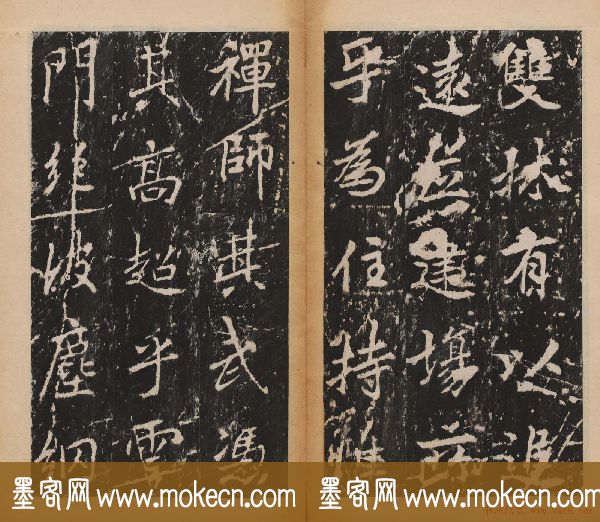 雙林有以追
遠建場
乎為住持
禪師其武憑
其高超乎雲
門絕彼塵網
墨客网 www.mokecn.com 墨客网 www.mokecn.com